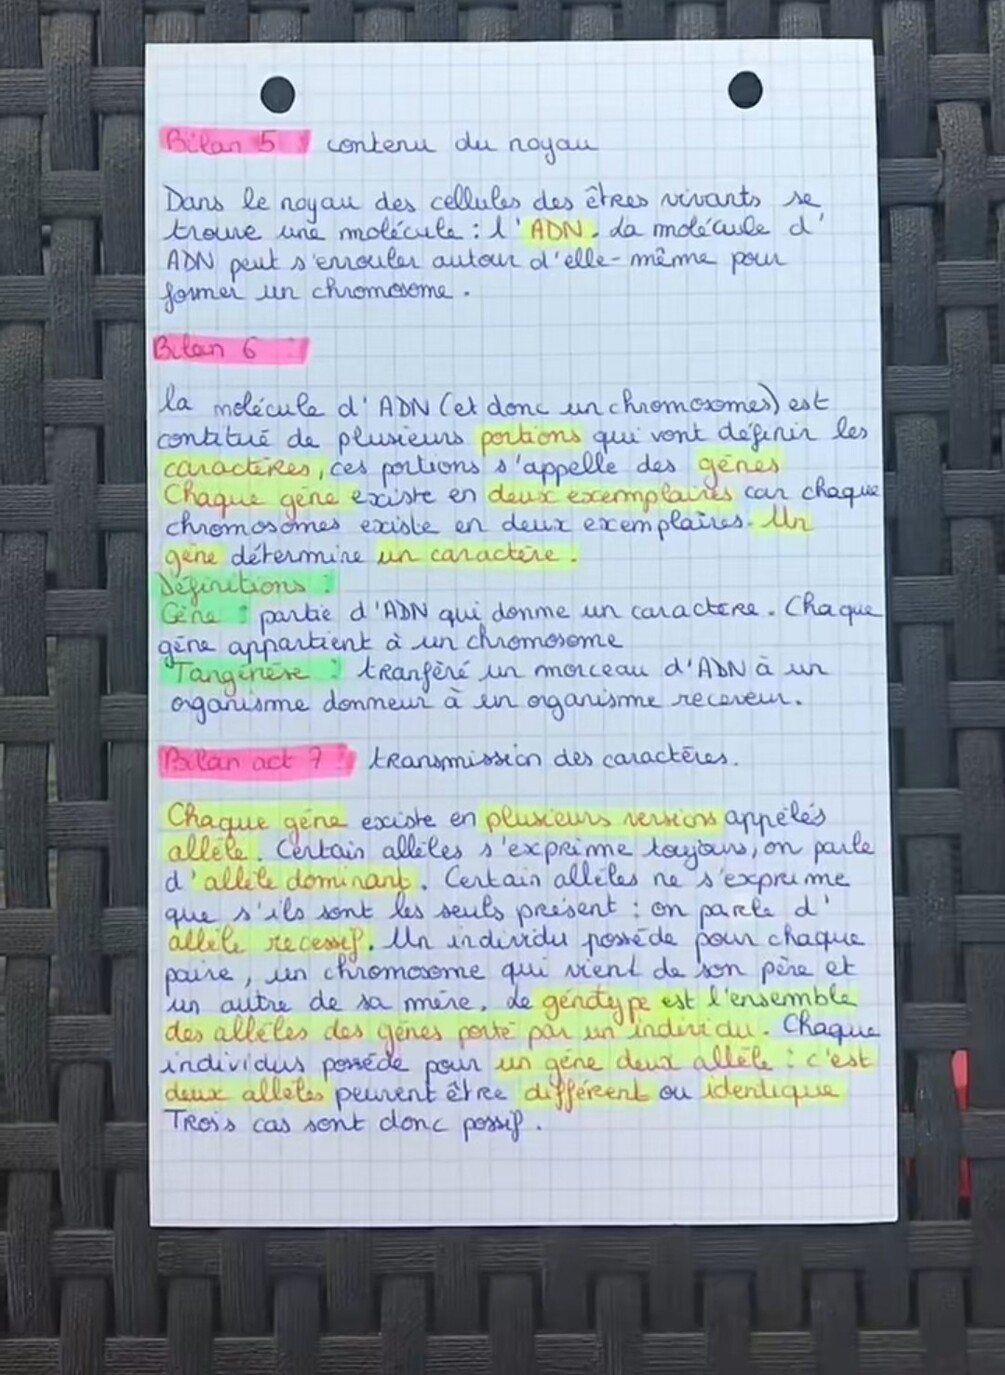 Bilan 5 : contenu du noyau
Dans le noyau des cellules des êtres vivants se
trouve une molécule : l'ADN. La molécule d'
ADN peut s'enrouler autour d'elle-même pour
former un chromosome.
Bilan 6 :
la molécule d'ADN (et donc un chromosomes) est
contitué de plusieurs portions qui vont définir les
caractères, ces portions s'appelle des gènes
Chaque gène existe en deux exemplaires car chaque
chromosomes existe en deux exemplaires. Un
gène détermine un caractère.
Définitions :
Gène : partie d'ADN qui donne un caractère. Chaque
gène appartient à un chromosome
Tangénèse : tranféré un morceau d'ADN à un
organisme donneur à un organisme receveur.
Bilan act 7 : transmission des caractères.
Chaque gène existe en plusieurs versions appélés
allèle. Certain allèles s'exprime toujours, on parle
d'allèle dominant. Certain allèles ne s'exprime
que s'ils sont les seuls présent : on parle d'
allèle recessif. Un individu possède pour chaque
paire, un chromosome qui vient de son père et
un autre de sa mère. Le génotype est l'ensemble
des allèles des gènes porté par un individu. Chaque
individus possède pour un gène deux allèle : c'est
deux allèles peuvent être différent ou identique
Trois cas sont donc possif.